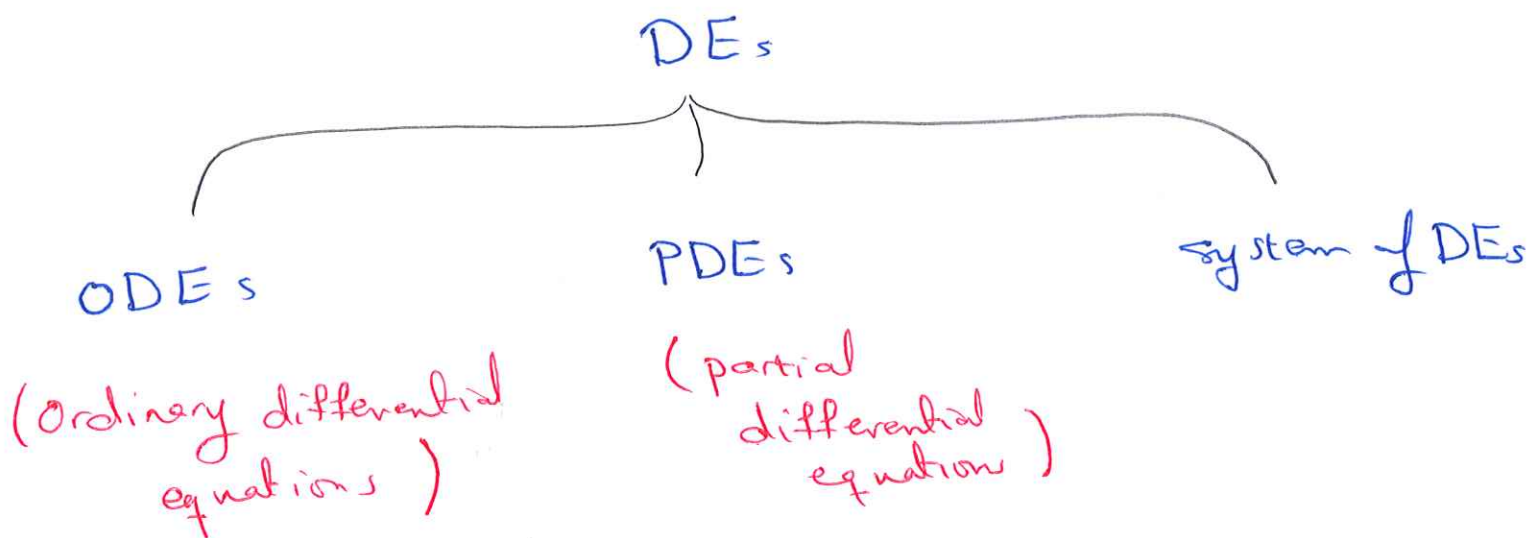 DEs
ODEs
PDEs
system of DEs
(Ordinary differential
equations)
(partial
differential
equations)